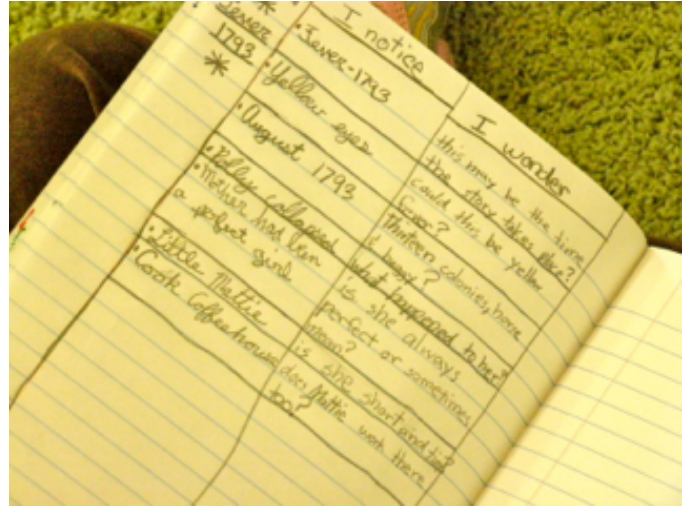 * Fever 1793 *
I notice
I wonder
• Fever-1793
this may be the time
the story takes place?
• Yellow eyes
could this be yellow
fever?
• August 1793
thirteen colonies, house
• Polly collapsed
what happened to her?
• Mother had been
a perfect girl
is she always
perfect or sometimes
mean?
• Little Mattie
is she short and
• Cook Coffeehouse
does Mattie work there
too?